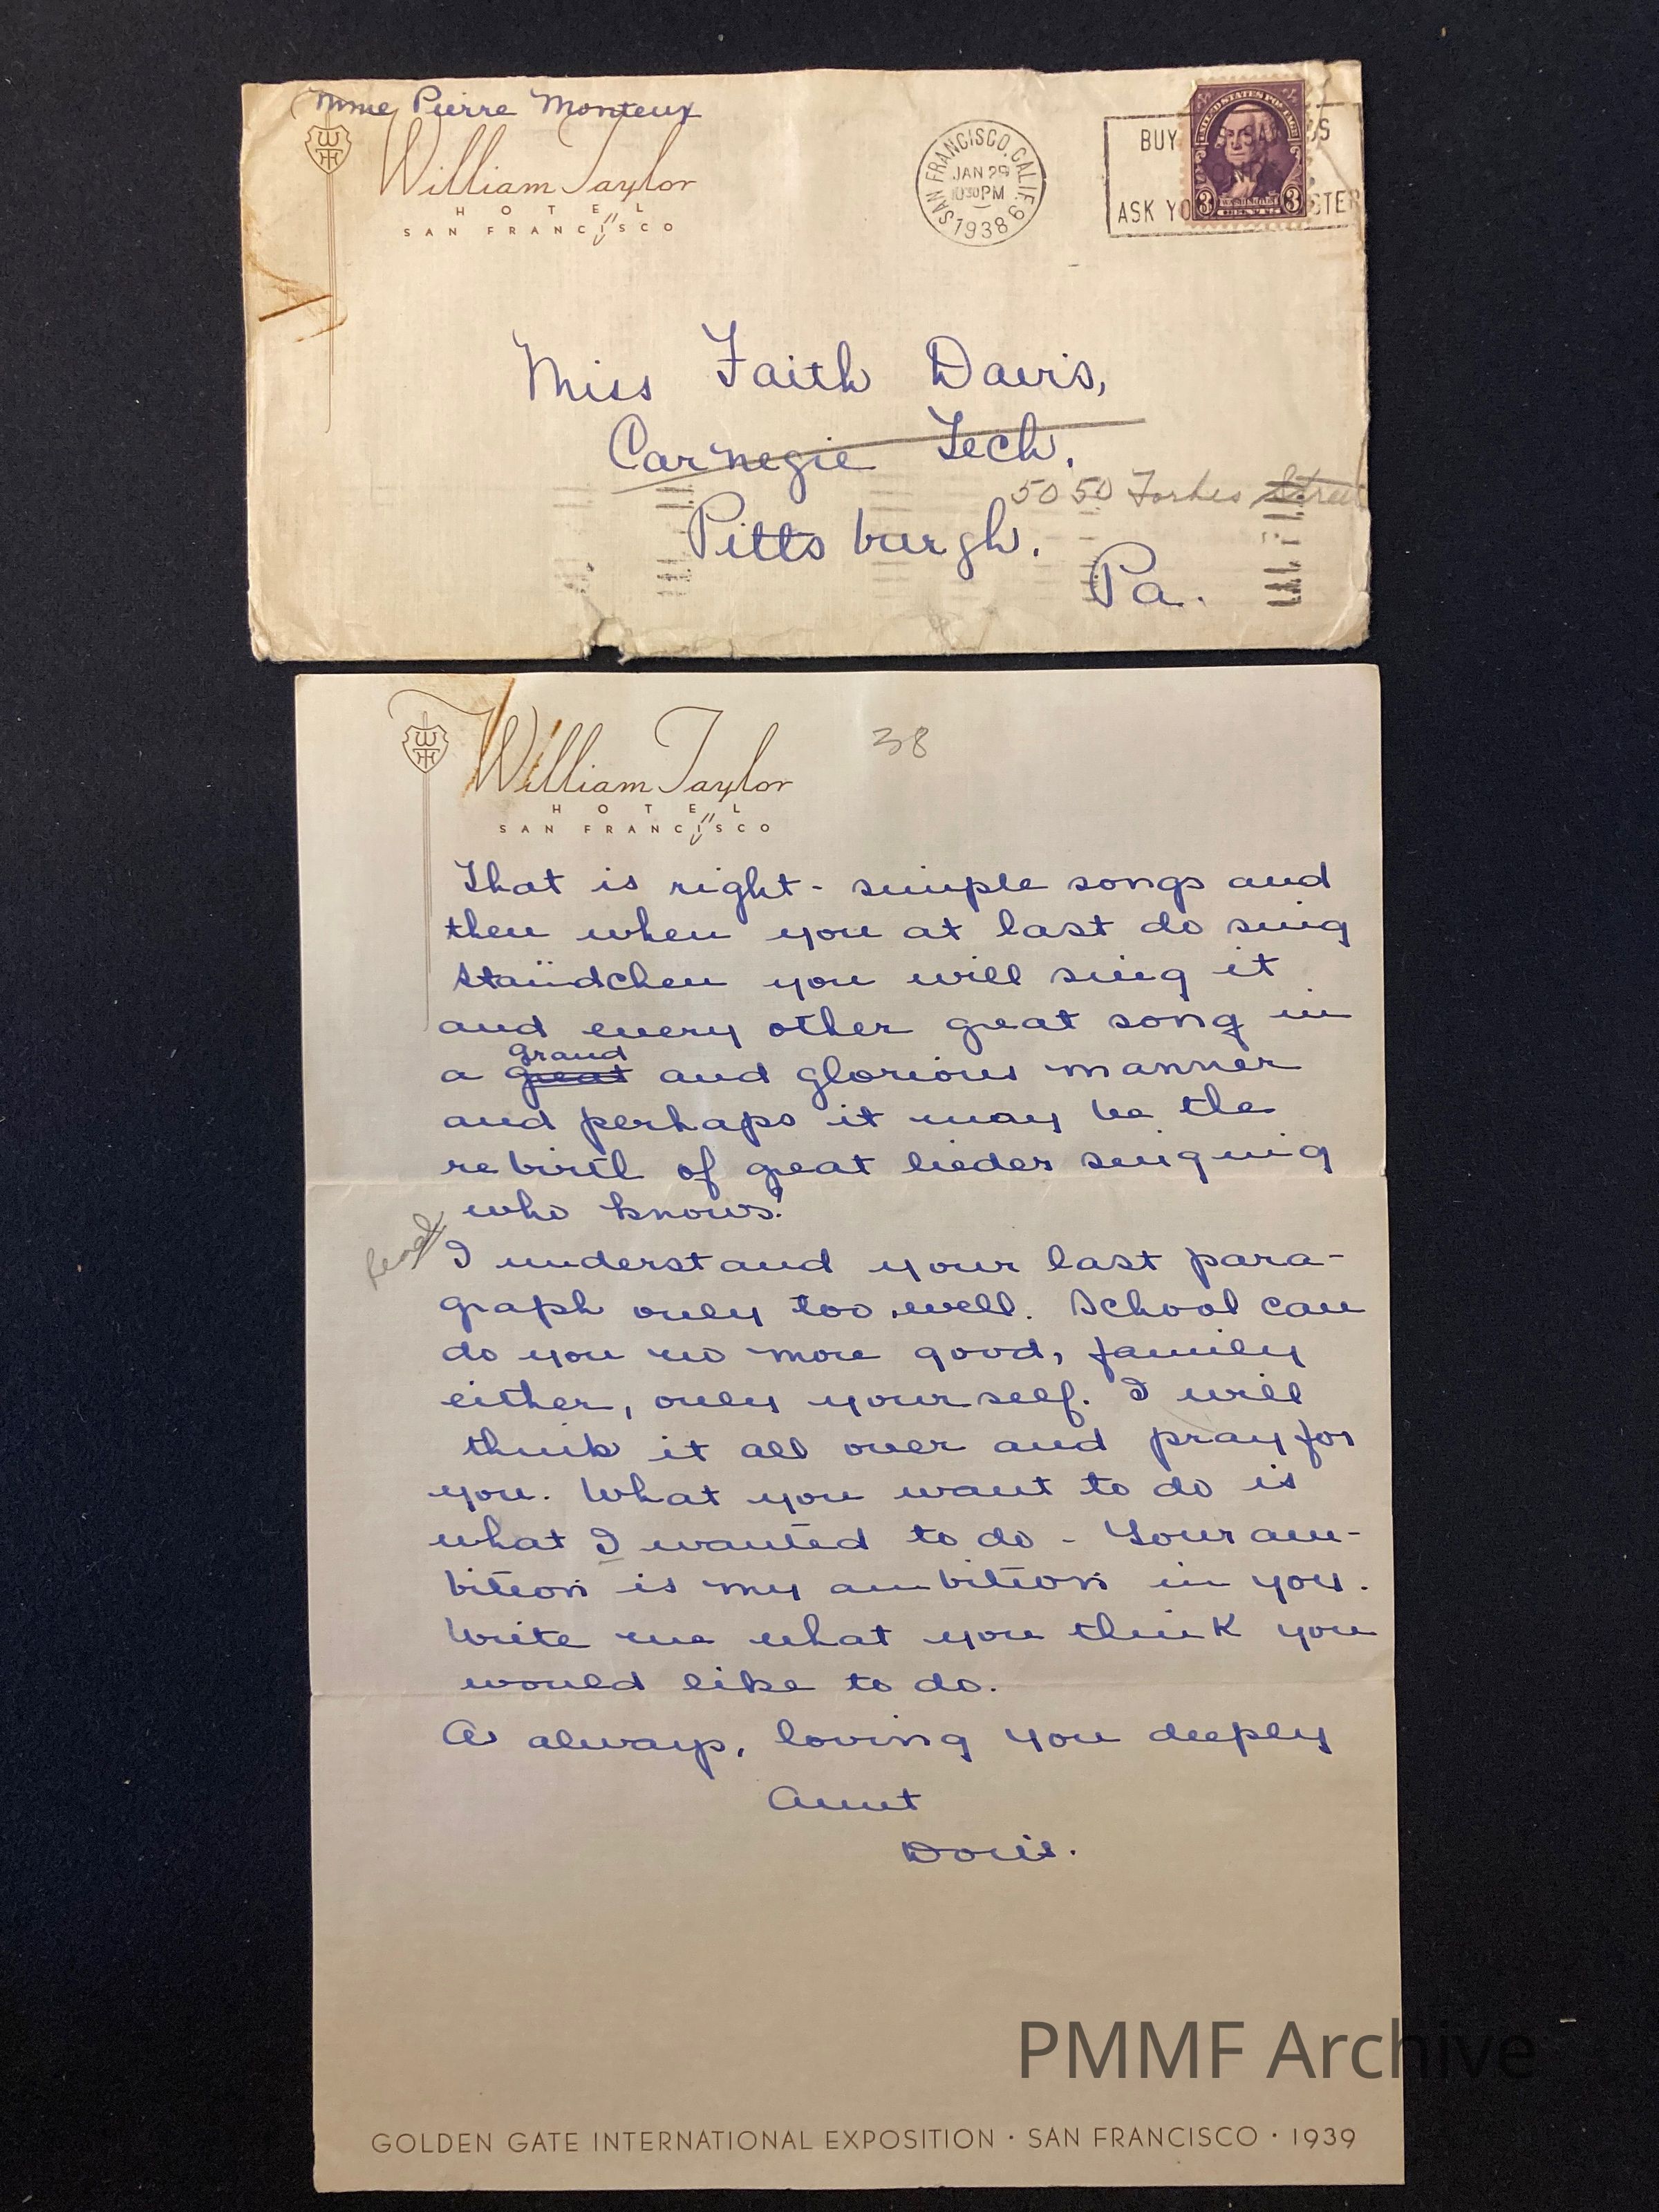 Mme Pierre Monteux
WTH
William Taylor
HOTEL
SAN FRANCISCO
SAN FRANCISCO, CALIF. 9
JAN 29
10 30 PM
1938
BUY
S
ASK YO
STER
UNITED STATES POSTAGE
3 3
Miss Faith Davis,
Carnegie Tech.
5050 Forbes Street
Pittsburgh.
Pa.
WTH
William Taylor
HOTEL
SAN FRANCISCO
38
That is right - simple songs and
then when you at last do sing
Staündchen you will sing it
and every other great song in
grand
a great and glorious manner
and perhaps it may be the
rebirth of great lieder singing
who knows!
read
I understand your last para-
graph only too well. School can
do you no more good, family
either, only yourself. I will
think it all over and pray for
you. What you want to do is
what I wanted to do - Your am-
bition is my ambition in you.
Write me what you think you
would like to do.
As always, loving you deeply
Aunt
Doris.
PMMF Archive
GOLDEN GATE INTERNATIONAL EXPOSITION · SAN FRANCISCO · 1939